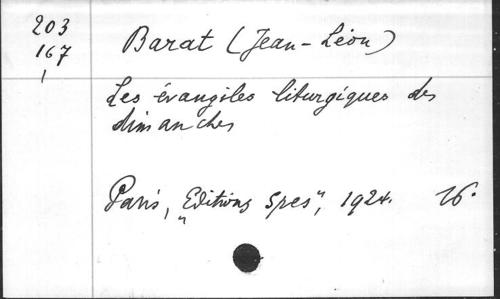 203
167
1
Barat (Jean-Léon)
Les évangiles liturgiques des
dimanches
Paris, „Editions Spes“, 1924. 16°